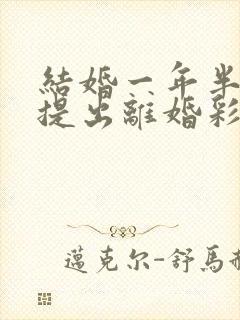 結婚一年半
提出離婚彩
邁克尔-舒馬赫